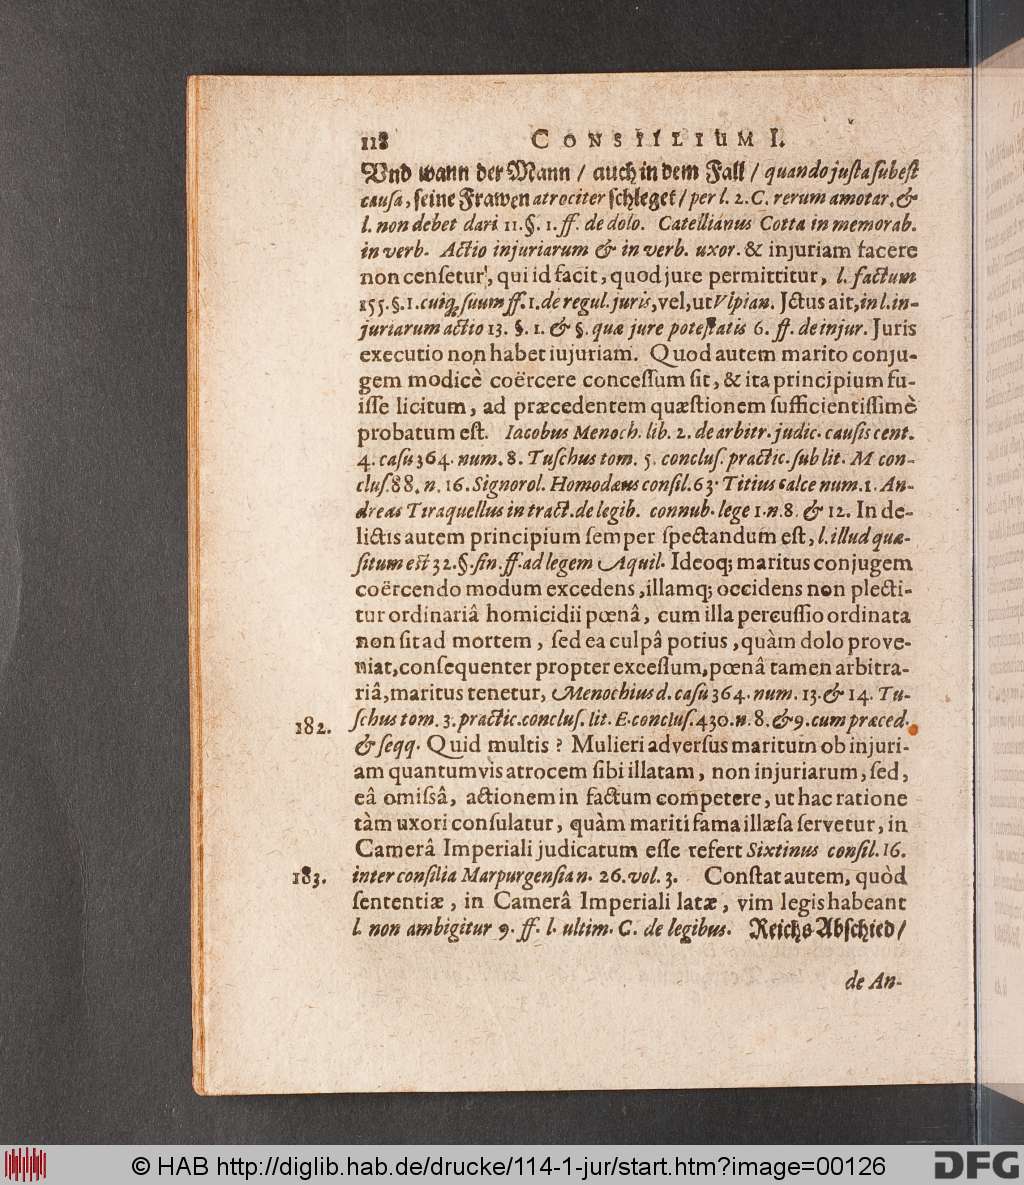 118 CONSILIUM I.
Vnd wann der Mann / auch in dem Fall / quando justa subest
causa, seine Frawen atrociter schleget / per l. 2. C. rerum amotar. &
l. non debet dari 11. §. 1. ff. de dolo. Catellianus Cotta in memorab.
in verb. Actio injuriarum & in verb. uxor. & injuriam facere
non censetur, qui id facit, quod jure permittitur, l. factum
155. §. 1. cuiq; suum ff. 1. de regul. juris, vel, ut Vlpian. Jctus ait, in l. in-
juriarum actio 13. §. 1. & §. quæ jure potestatis 6. ff. de injur. Juris
executio non habet iujuriam. Quod autem marito conju-
gem modicè coërcere concessum sit, & ita principium fu-
isse licitum, ad præcedentem quæstionem sufficientissimè
probatum est. Iacobus Menoch. lib. 2. de arbitr. judic. causis cent.
4. casu 364. num. 8. Tuschus tom. 5. conclus. practic. sub lit. M con-
clus. 88. n. 16. Signorol. Homodæus consil. 63. Titius calce num. 1. An-
dreas Tiraquellus in tract. de legib. connub. lege 1. n. 8. & 12. In de-
lictis autem principium semper spectandum est, l. illud quæ-
situm est 32. §. fin. ff. ad legem Aquil. Ideoq; maritus conjugem
coërcendo modum excedens, illamq; occidens non plecti-
tur ordinariâ homicidii pœnâ, cum illa percussio ordinata
non sit ad mortem, sed ea culpâ potius, quàm dolo prove-
niat, consequenter propter excessum, pœnâ tamen arbitra-
riâ, maritus tenetur, Menochius d. casu 364. num. 13. & 14. Tu-
schus tom. 3. practic. conclus. lit. E. conclus. 430. n. 8. & 9. cum præced.
182.
& seqq. Quid multis? Mulieri adversus maritum ob injuri-
am quantumvìs atrocem sibi illatam, non injuriarum, sed,
eâ omissâ, actionem in factum competere, ut hac ratione
tàm uxori consulatur, quàm mariti fama illæsa servetur, in
Camerâ Imperiali judicatum esse refert Sixtinus consil. 16.
183. inter consilia Marpurgensian. 26. vol. 3. Constat autem, quòd
sententiæ, in Camerâ Imperiali latæ, vim legis habeant
l. non ambigitur 9. ff. l. ultim. C. de legibus. Reichs Abschied /
de An-
© HAB http://diglib.hab.de/drucke/114-1-jur/start.htm?image=00126
DFG